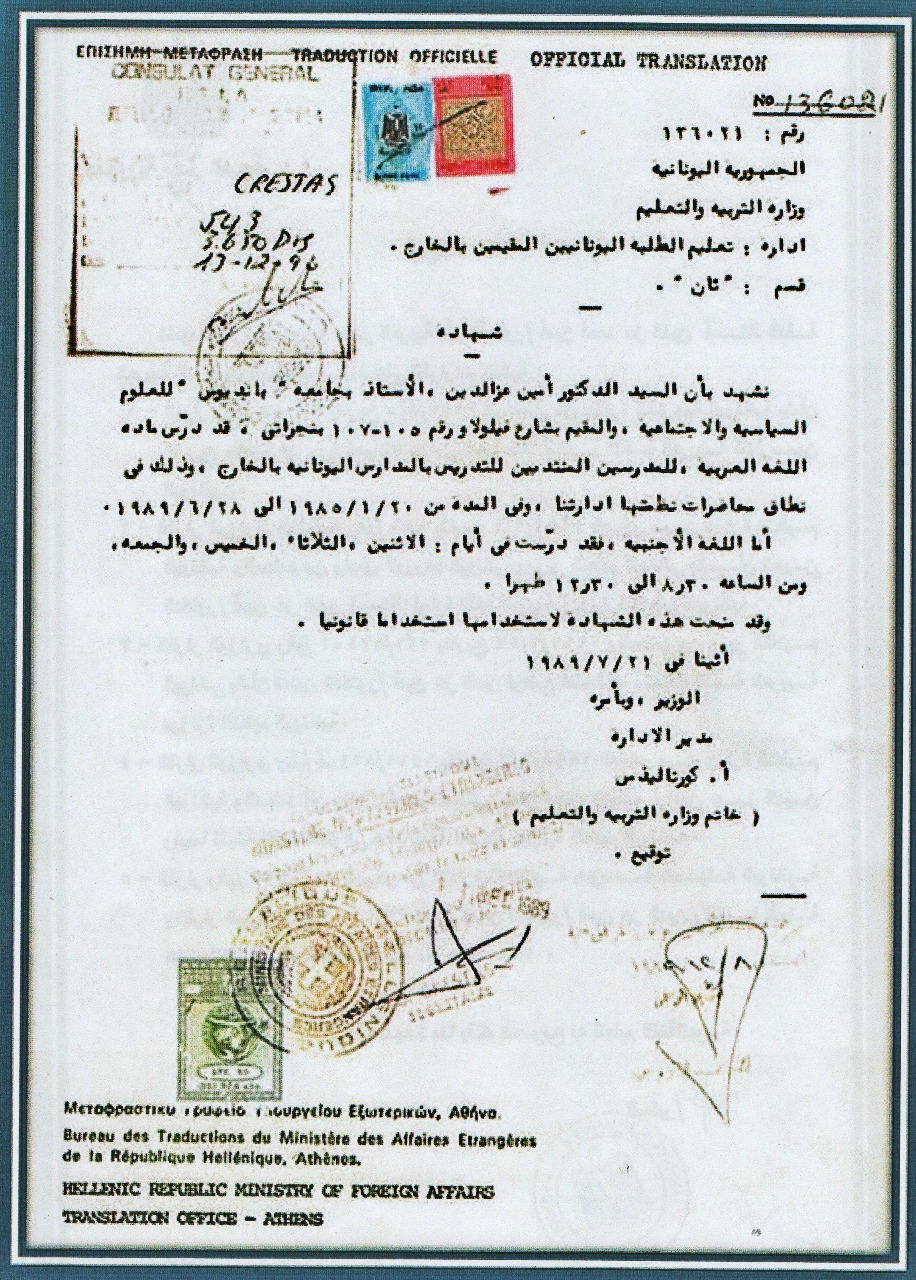 ΕΠΙΣΗΜΗ ΜΕΤΑΦΡΑΣΗ TRADUCTION OFFICIELLE OFFICIAL TRANSLATION
CONSULAT GENERAL
No 136021
رقم : ١٣٦٠٢١
الجمهورية اليونانيه
وزاره التربيه والتعليم
اداره : تعليم الطلبه اليونانيين المقيمين بالخارج .
قسم : "ثان" .
CRESTAS
543
3.650 DIS
13-12-96
شهاده
نشهد بأن السيد الدكتور أمين عزالدين ، الأستاذ بجامعه " بانديوس " للعلوم
السياسية والاجتماعية ، والمقيم بشارع فيلولاو رقم ١٠٥-١٠٧ بنجراتى ، قد درّس ماده
اللغة العربيه ، للمدرسين المنتدبين للتدريس بالمدارس اليونانيه بالخارج ، وذلك فى
نطاق محاضرات نظمتها ادارتنا ، وفى المدة من ١٩٨٥/١/٢٠ الى ١٩٨٩/٦/٢٨ .
أما اللغة الأجنبيه ، فقد درّست فى أيام : الاثنين ، الثلاثاء ، الخميس ، والجمعه ،
ومن الساعه ٨٫٣٠ الى ١٢٫٣٠ ظهرا .
وقد منحت هذه الشهادة لاستخدامها استخداما قانونيا .
أثينا فى ١٩٨٩/٧/٢١
الوزير ، وبأمره
مدير الاداره
أ. كورتاليذس
( خاتم وزاره التربيه والتعليم )
توقيع .
1989
Μεταφραστικό Γραφείο Υπουργείου Εξωτερικών, Αθήνα.
Bureau des Traductions du Ministère des Affaires Etrangères
de la République Hellénique, Athènes.
HELLENIC REPUBLIC MINISTRY OF FOREIGN AFFAIRS
TRANSLATION OFFICE – ATHENS